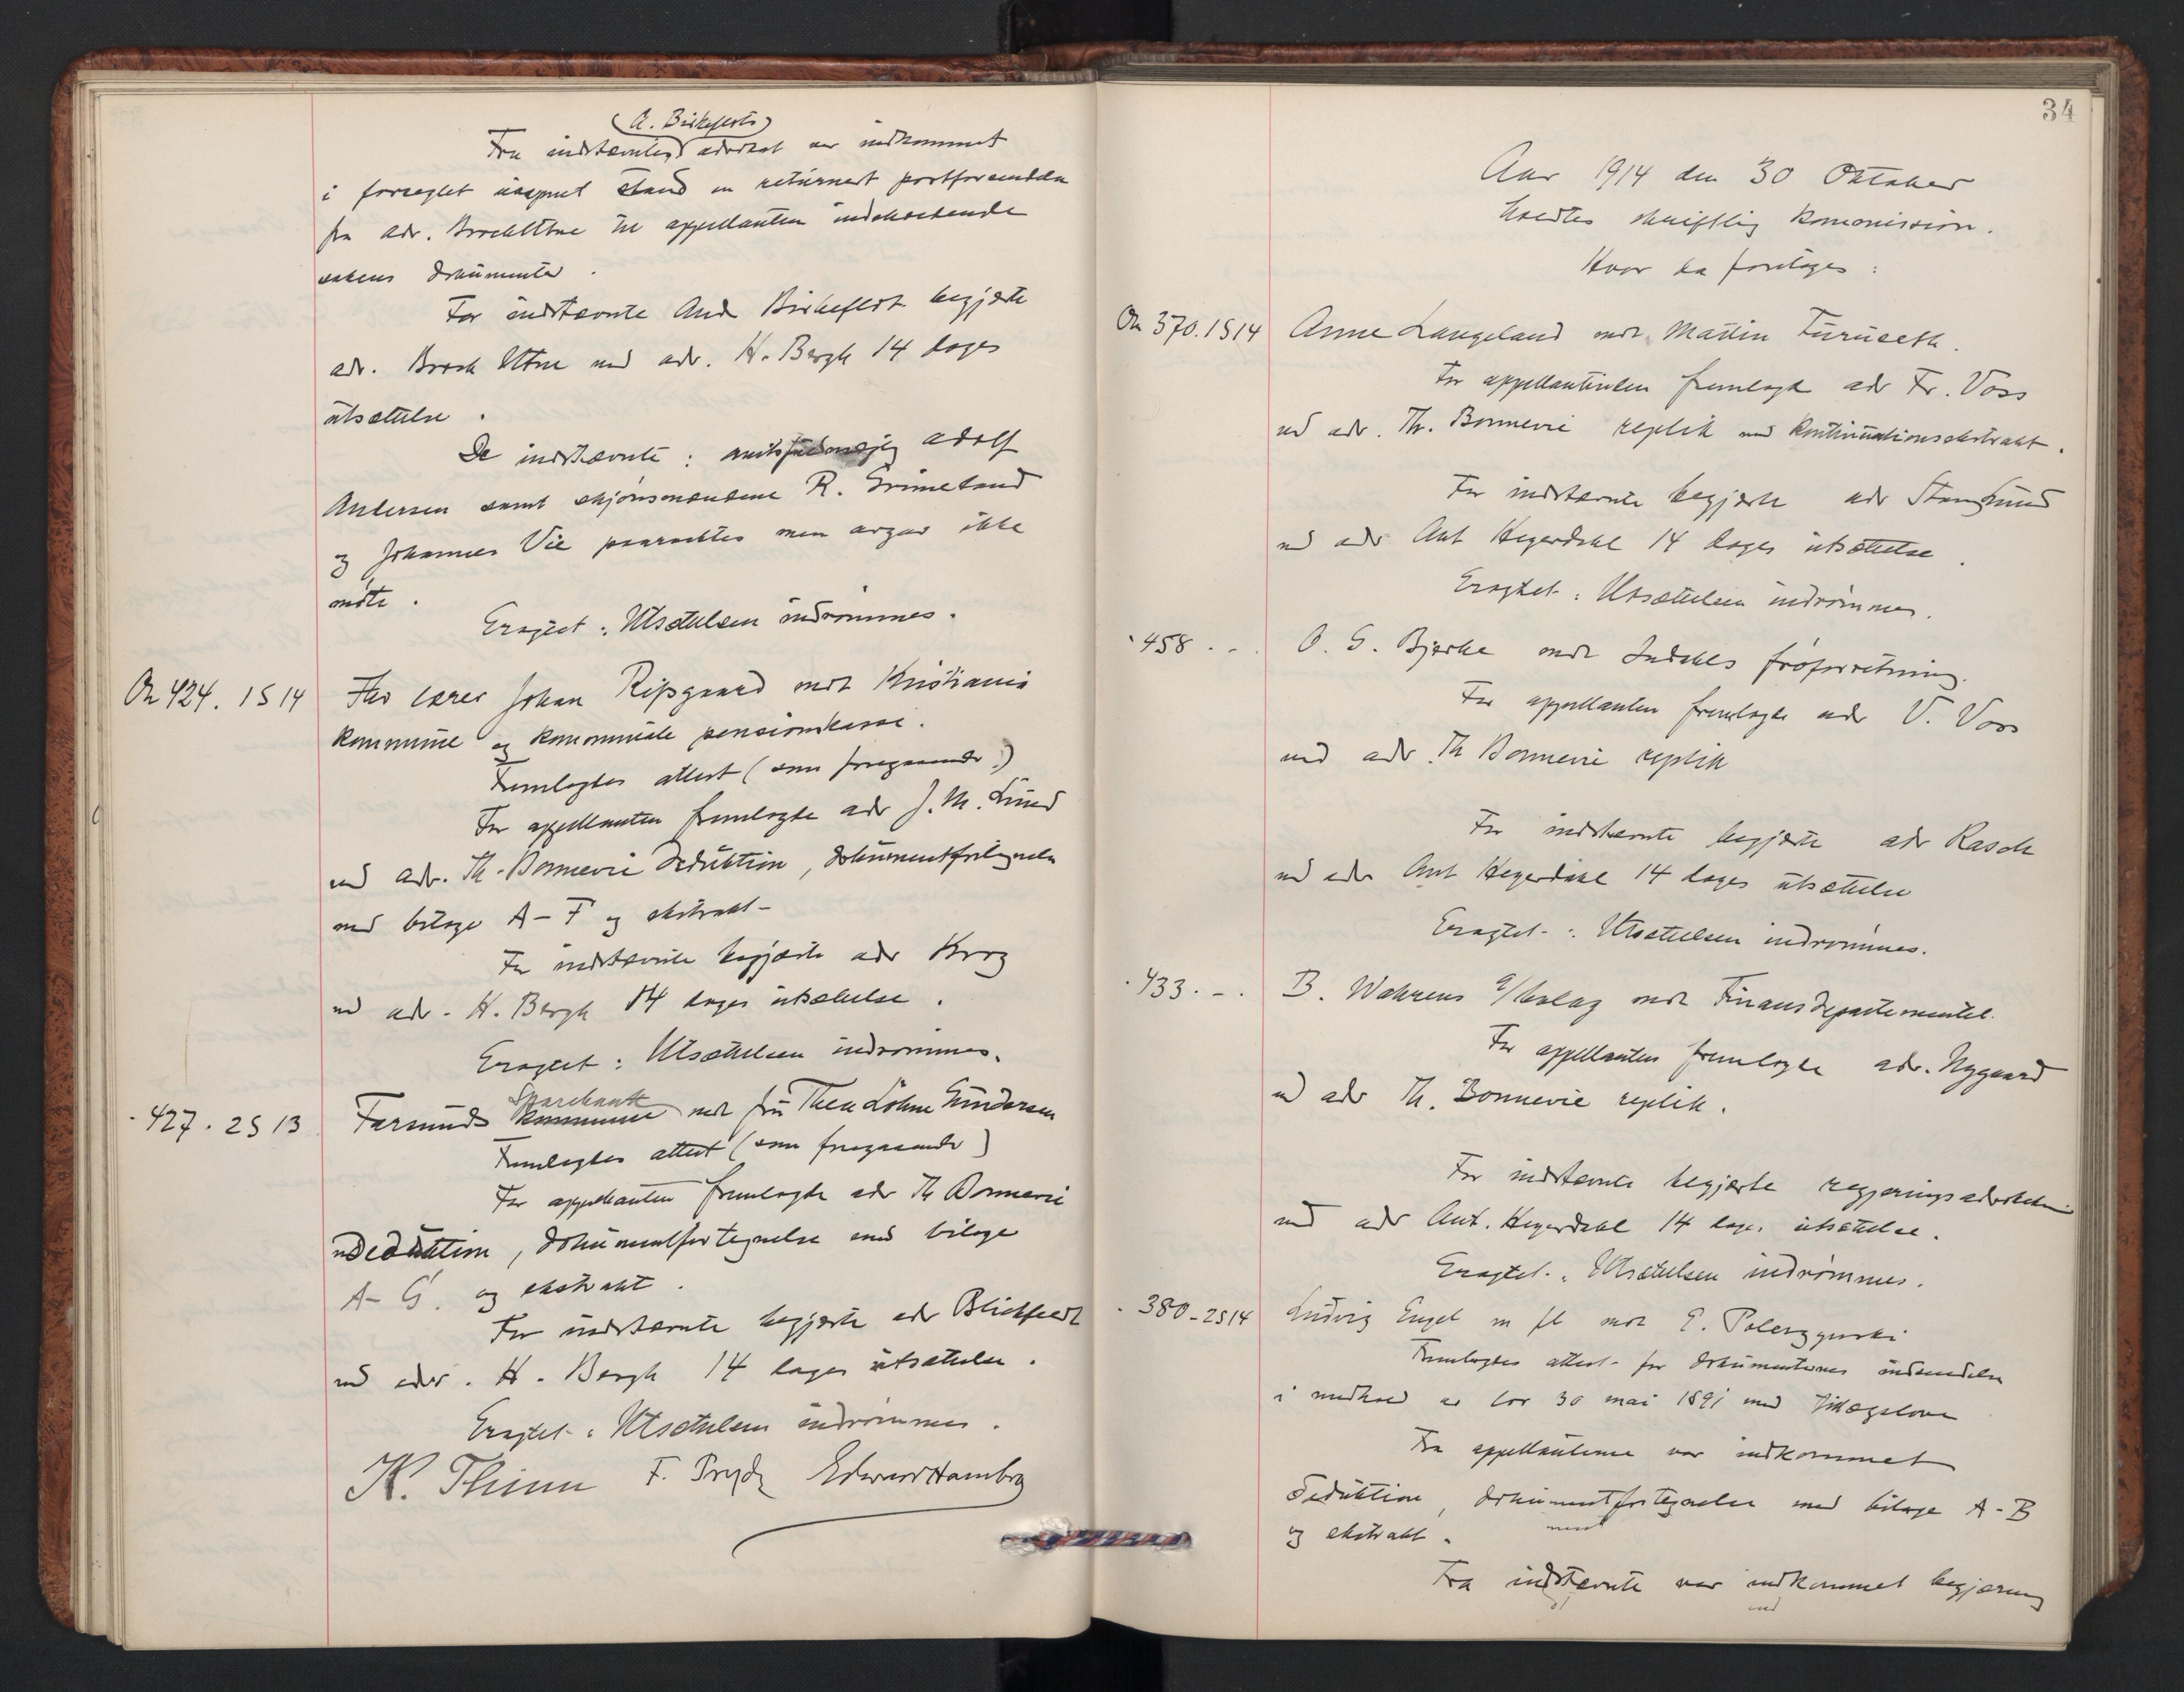 (A. Birkeflots)
Fra indstævntes advokat var indkommet
i forseglet uaapnet stand en returnert postforsendelse
fra adv. Brock Utne til appellanten indeholdende
sakens dokumenter.
For indstævnte And Birkeflot begjærte
adv. Brock Utne ved adv. H. Bergh 14 dages
utsættelse.
De indstævnte: Adolf
Andersen samt skjønsmændene R. Grimeland
og Johannes Vie paaraabtes men avgav ikke
møte.
Eragtet: Utsættelsen indrømmes.
On 424. 1S 14
Fhv lærer Johan Rissgaard mot Kristiania
kommune og kommunale pensionskasse.
Fremlagdes attest (som foregaaende)
For appellanten fremlagde adv J. M. Lund
ved adv. Th. Bonnevie deduktion, dokumentfortegnelse
med bilage A-F og ekstrakt-
For indstævnte begjærte adv Krog
ved adv. H. Bergh 14 dages utsættelse.
Eragtet: Utsættelsen indrømmes.
- 427. 2S 13
Sparebank
Farsunds kommune mot fru Thea Lohne Gundersen
Fremlagdes attest (som foregaaende)
For appellanten fremlagde adv Th Bonnevie
deduktion, dokumentfortegnelse med bilage
A-G. og ekstrakt.
For indstævnte begjærte adv Blickfeldt
ved adv. H. Bergh 14 dages utsættelse.
Eragtet: Utsættelsen indrømmes.
K. Thinn F. Pryds Edvard Hambro
34
Aar 1914 den 30 Oktober
holdtes skriftlig kommission.
Hvor da foretoges:
On 370. 1S14
Anne Langeland mot Martin Furuseth.
For appellantinden fremlagde adv Fr. Voss
ved adv. Th. Bonnevie replik med kontinuationsekstrakt.
For indstævnte begjærte adv Stamsund
ved adv Ant Hegerdahl 14 dages utsættelse.
Eragtet: Utsættelsen indrømmes.
- 458. -.
O. G. Bjerke mot Indahls frøforretning.
For appellanten fremlagde adv V. Voss
ved adv. Th Bonnevie replik
For indstævnte begjærte adv Rasch
ved adv Ant Hegerdahl 14 dages utsættelse
Eragtet: Utsættelsen indrømmes.
- 433. -.
B. Wahrens a/bolag mot Finansdepartementet.
For appellanten fremlagde adv. Nygaard
ved adv Th. Bonnevie replik.
For indstævnte begjærte regjeringsadvokaten
ved adv Ant. Hegerdahl 14 dages utsættelse.
Eragtet: Utsættelsen indrømmes.
- 380 - 2S14
Ludvig Engel m fl mot E. Polerzynski
Fremlagdes attest for dokumenternes indsendelse
i medhold av lov 30 mai 1891 med tillægslove
Fra appellanterne var indkommet
deduktion, dokumentfortegnelse med bilage A-B
og ekstrakt.
Fra indstævnte var indkommet begjæring